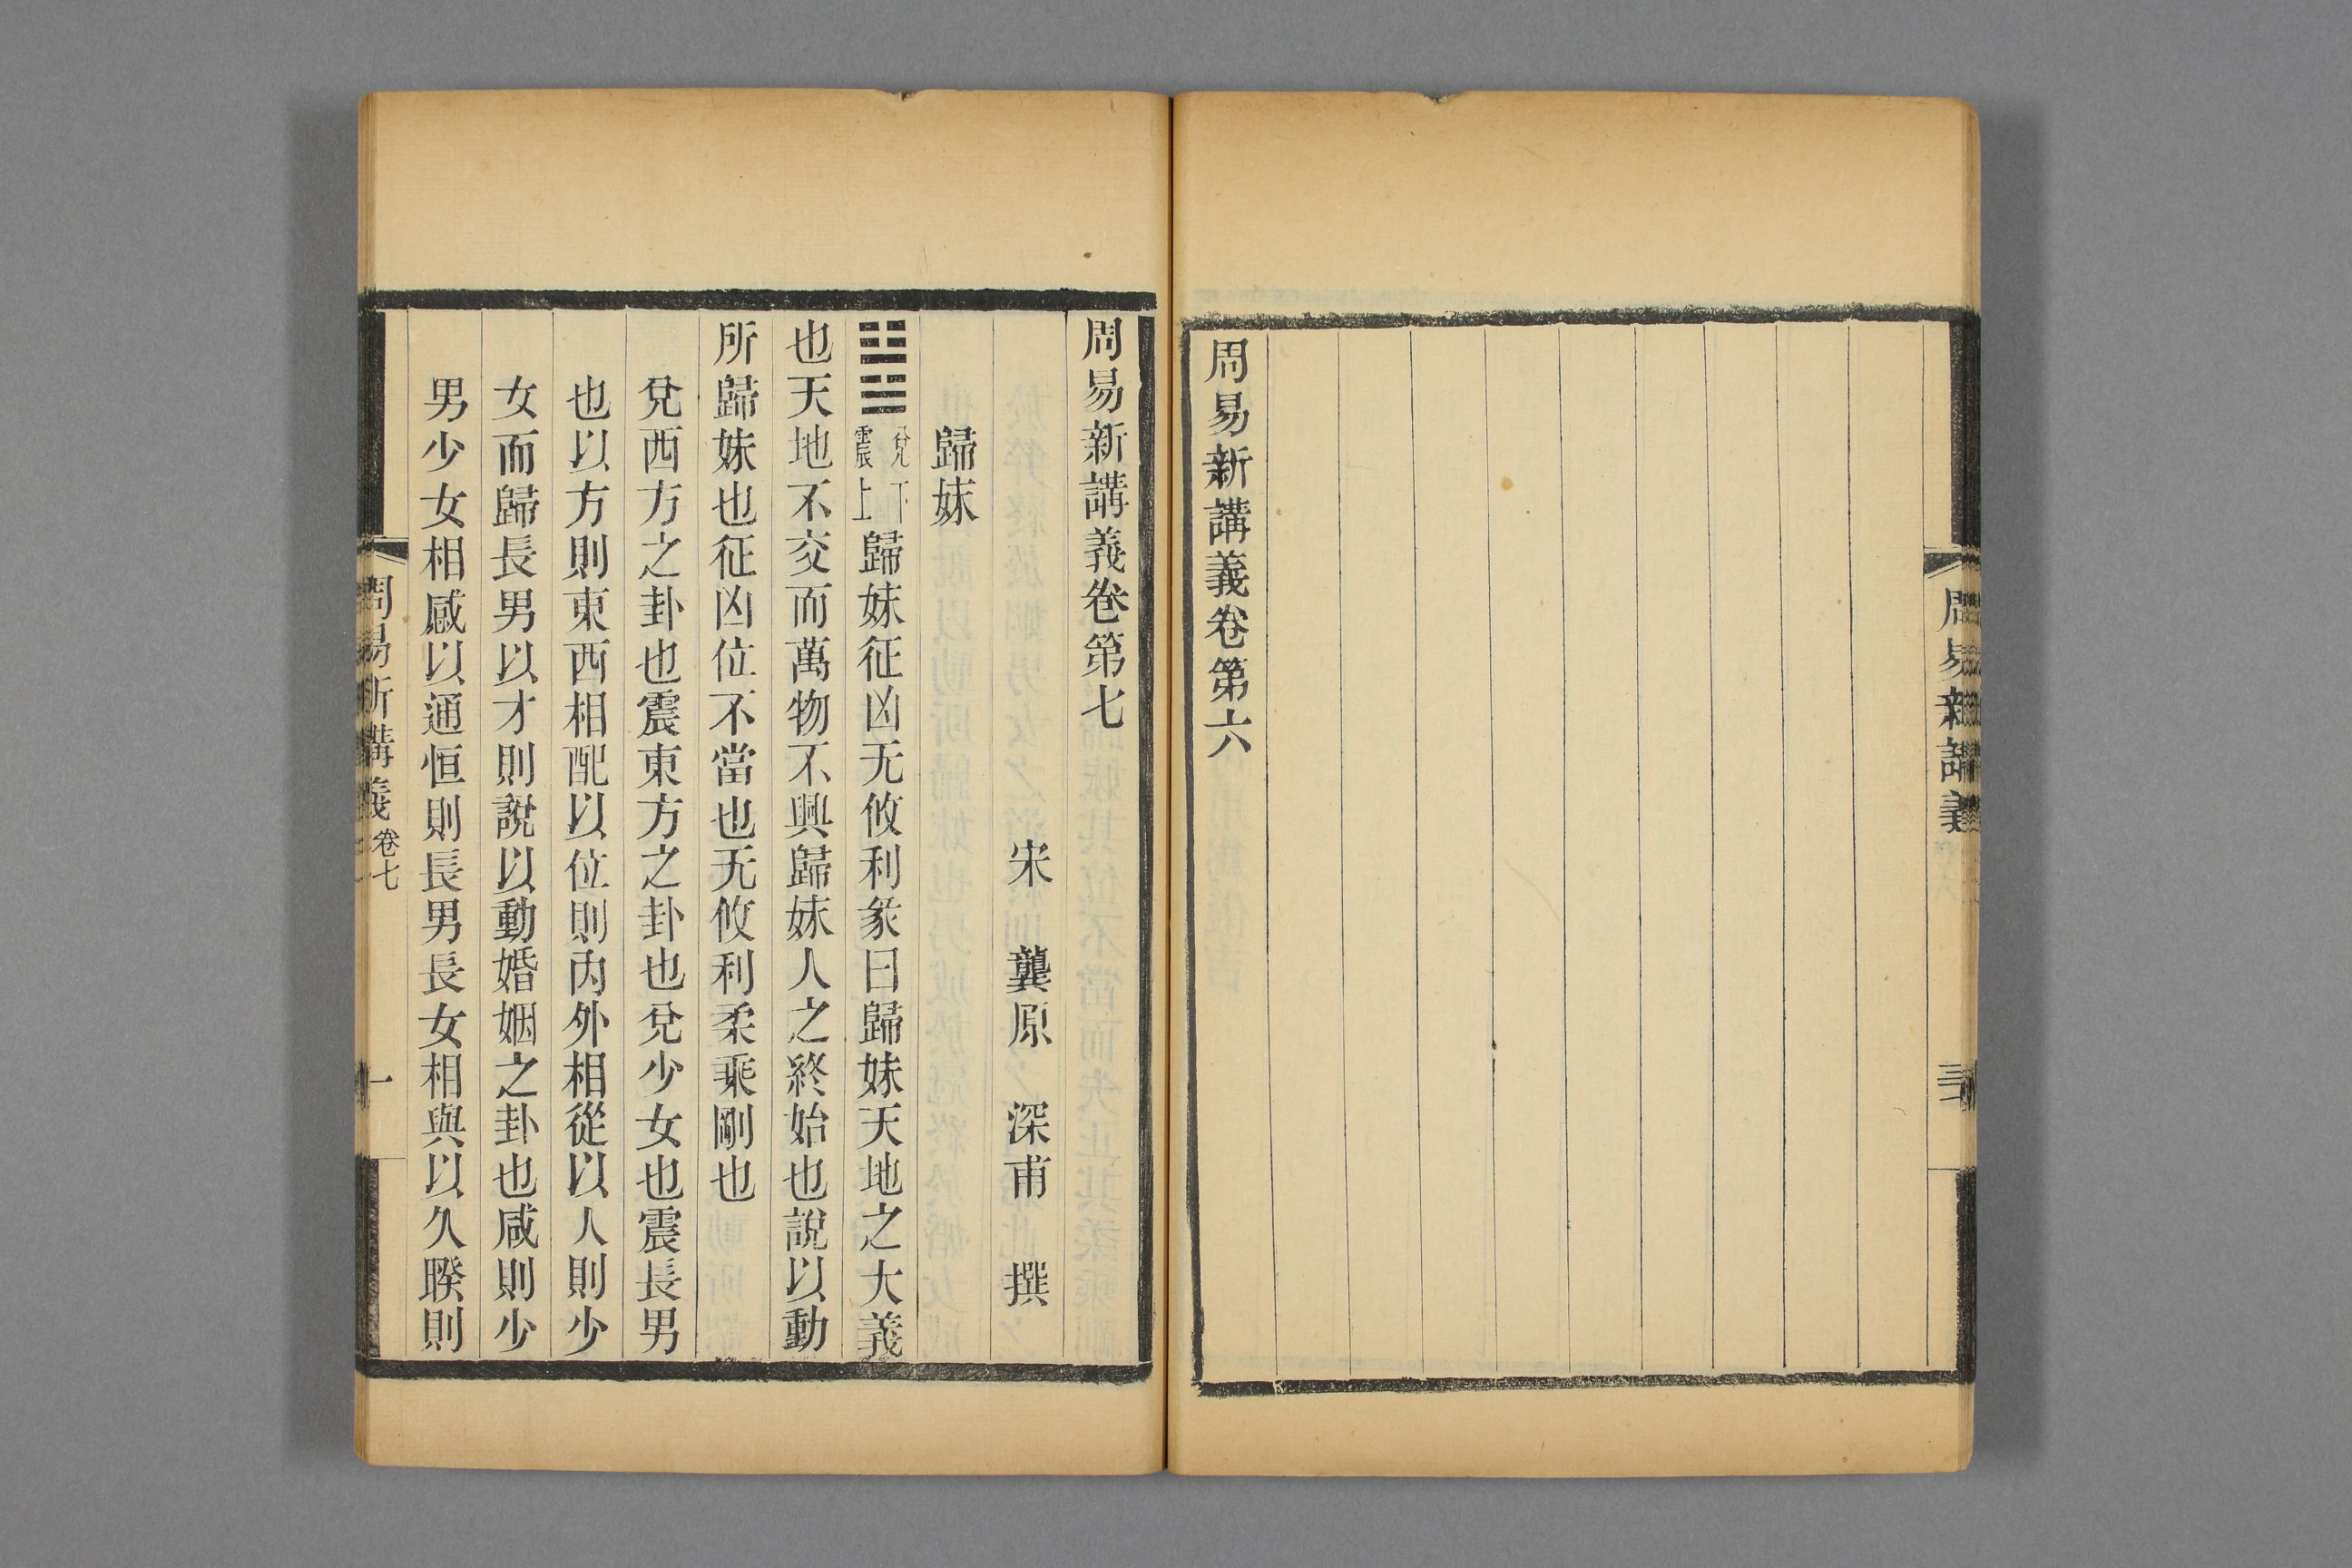 周易新講義
三
周易新講義卷第六
周易新講義卷第七
宋 龔原 深甫 撰
歸妹
䷵兌下震上歸妹征凶无攸利彖曰歸妹天地之大義
也天地不交而萬物不興歸妹人之終始也說以動
所歸妹也征凶位不當也无攸利柔乘剛也
兌西方之卦也震東方之卦也兌少女也震長男
也以方則東西相配以位則內外相從以人則少
女而歸長男以才則說以動婚姻之卦也咸則少
男少女相感以通恒則長男長女相與以久睽則
周易新講義 卷七 一